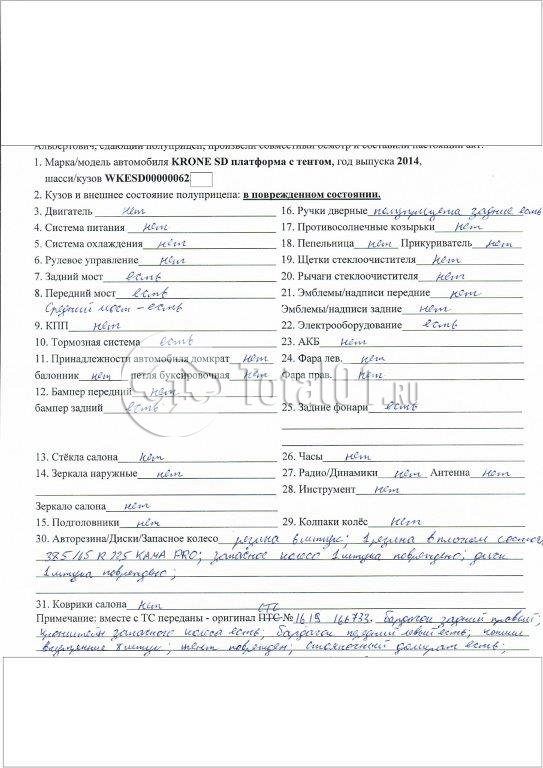 Альбертович, сдающий полуприцеп, произвели совместный осмотр и составили настоящий акт:
1. Марка/модель автомобиля KRONE SD платформа с тентом, год выпуска 2014,
шасси/кузов WKESD00000062
2. Кузов и внешнее состояние полуприцепа: в поврежденном состоянии.
3. Двигатель нет
4. Система питания нет
5. Система охлаждения нет
6. Рулевое управление нет
7. Задний мост есть
8. Передний мост есть
Средний мост - есть
9. КПП нет
10. Тормозная система есть
11. Принадлежности автомобиля домкрат нет
балонник нет петля буксировочная нет
12. Бампер передний нет
бампер задний есть
13. Стёкла салона нет
14. Зеркала наружные нет
Зеркало салона нет
15. Подголовники нет
16. Ручки дверные полуприцепа задние есть
17. Противосолнечные козырьки нет
18. Пепельница нет Прикуриватель нет
19. Щетки стеклоочистителя нет
20. Рычаги стеклоочистителя нет
21. Эмблемы/надписи передние нет
Эмблемы/надписи задние нет
22. Электрооборудование есть
23. АКБ нет
24. Фара лев. нет
Фара прав. нет
25. Задние фонари есть
26. Часы нет
27. Радио/Динамики нет Антенна нет
28. Инструмент нет
29. Колпаки колёс нет
30. Авторезина/Диски/Запасное колесо резина 6 штук; 1 резина в плохом
385/65 R 225 КАМА PRO; запасное колесо 1 штука повреждено; диск
1 штука повреждено;
31. Коврики салона нет
Примечание: вместе с ТС переданы - оригинал ПТС СТС № 1619 166733. бардачок задний правый;
запасного колеса есть; бардачок передний левый есть;
внутренние 8 штук; тент поврежден; стояночный домкрат есть;
total01.ru